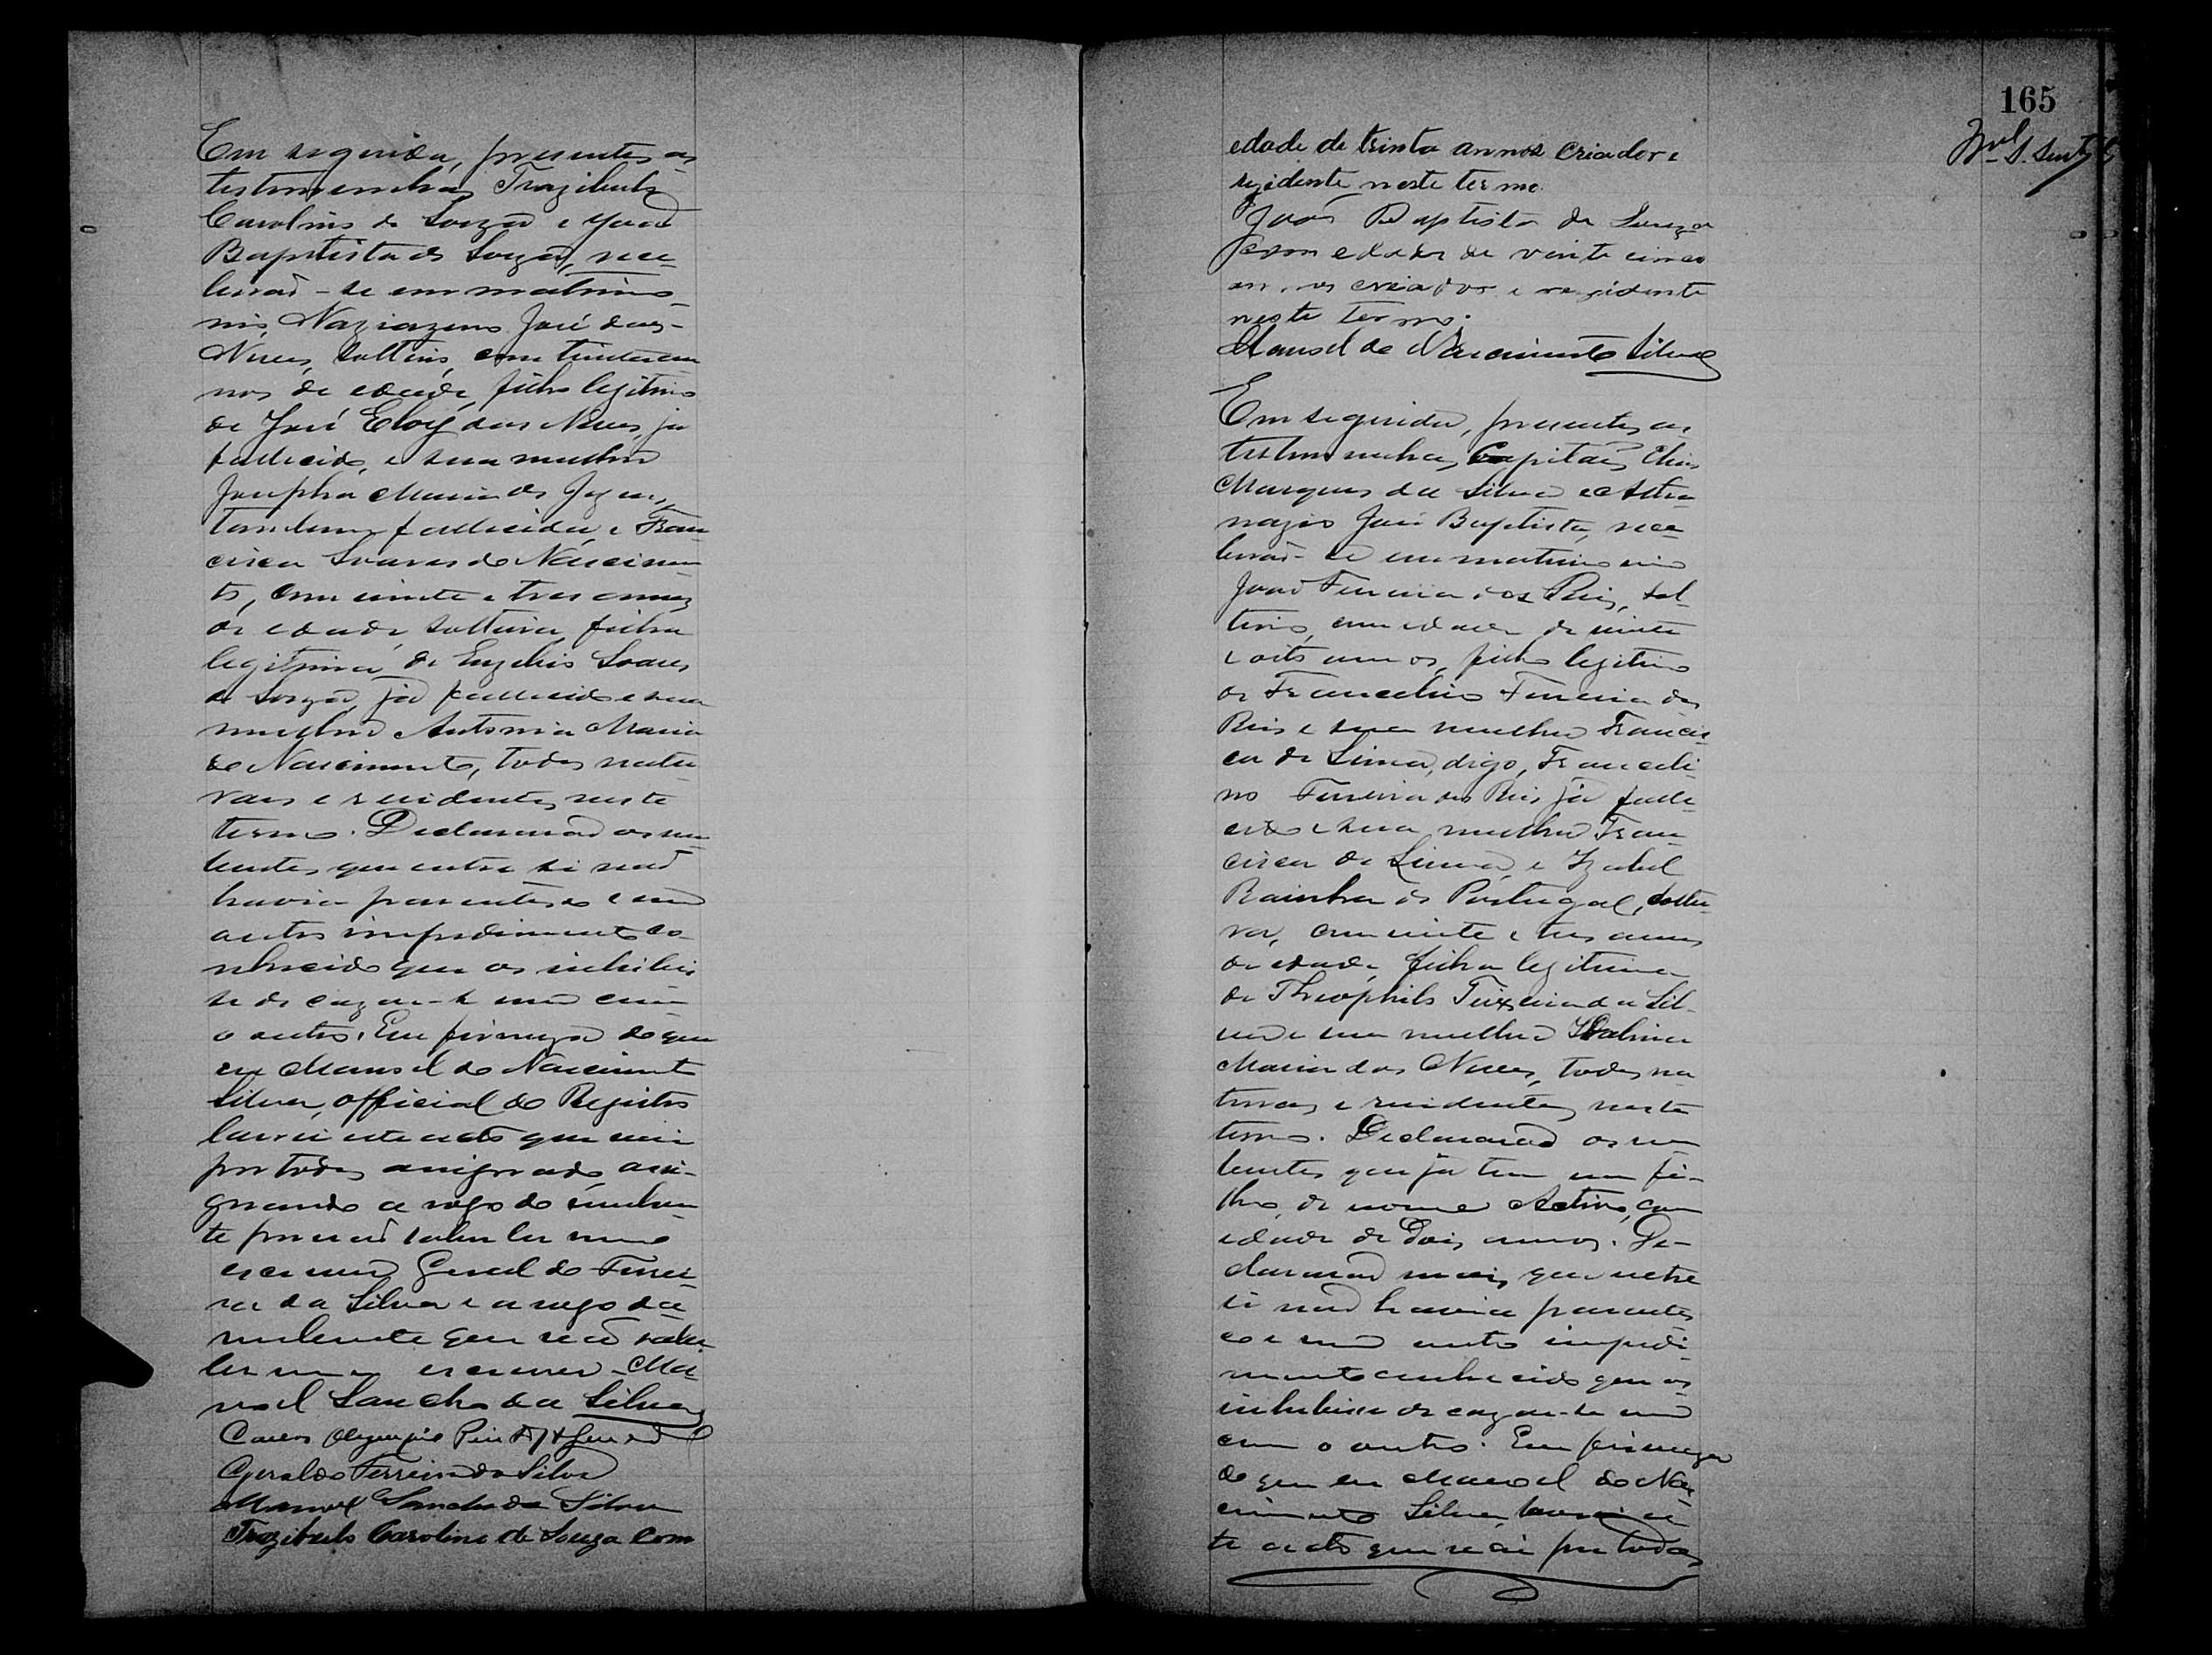 Em seguida, presentes as
testemunhas Trazibulo
Carolino de Souza e João
Baptista de Souza, rece-
berão-se em matrimo-
nio, Naziazeno José das
Neves, solteiro, com trinta an-
nos de edade, filho legitimo
de José Eloy das Neves, já
fallecido, e sua mulher
Josepha Maria de Jezus,
tambem fallecida, e Fran-
cisca Soares do Nascimen-
to, com vinte e tres annos
de edade, solteira, filha
legitima de Euzebio Soares
de Souza, já fallecido e sua
mulher Antonia Maria
do Nascimento, todos natu-
raes e rezidentes neste
termo. Declararão os nu-
bentes que entre si não
havia parentesco e nem
outro impedimento co-
nhecido que os inhibis-
se de cazar-se um com
o outro. Em firmeza do que
eu Manoel do Nascimento
Silva, official do Registro
lavrei este acto que vai
por todos assignado, assi-
gnando a rogo do nuben-
te por não saber ler nem
escrever Geraldo Ferrei-
ra da Silva e a rogo da
nubente que não sabe
ler nem escrever Ma-
noel Sancho da Silva
Carlos Olympio
Geraldo Ferreira da Silva
Manoel Sancho da Silva
Trazibulo Carolino de Souza com
165
edade de trinta annos criador e
rezidente neste termo.
João Baptista de Souza
com edade de vinte cinco
annos criador e rezidente
neste termo.
Manoel do Nascimento Silva
Em seguida, presentes as
testemunhas, Capitão Elias
Marques da Silva e Atha-
nazio José Baptista, rece-
berão-se em matrimonio
João Ferreira dos Reis, sol-
teiro, com edade de vinte
e oito annos, filho legitimo
de Francelino Ferreira dos
Reis e sua mulher Francis-
ca de Lima, digo, Franceli-
no Ferreira dos Reis já falle-
cido e sua mulher Fran-
cisca de Lima, e Izabel
Rainha de Portugal, soltei-
ra, com vinte e tres annos
de edade, filha legitima
de Theophilo Teixeira da Sil-
va e sua mulher Idalina
Maria das Neves, todos na-
turaes e rezidentes neste
termo. Declararão os nu-
bentes que já tem um fi-
lho, de nome Activo, com
edade de dois annos. De-
clararão mais que entre
si não havia parentes-
co e nem outro impedi-
mento conhecido que os
inhibisse de cazar-se um
com o outro. Em firmeza
do que eu Manoel do Nas-
cimento Silva, lavrei es-
te acto que vai por todos